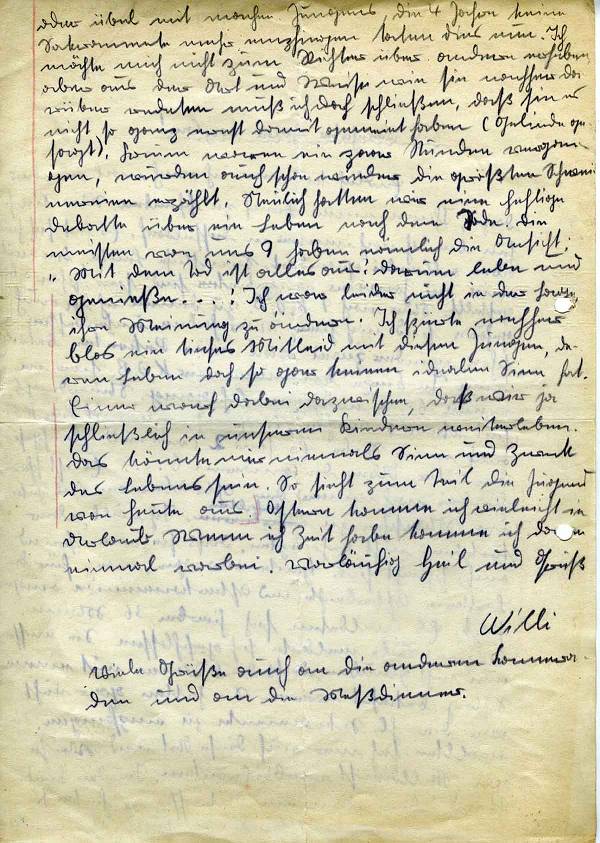 oder übel mit manchen Jungens die 4 Jahre keine
Sakramente mehr empfingen taten dies nun. Ich
möchte mich nicht zum Richter über andere erheben
aber aus der Art und Weise wie sie nachher da
rüber redeten muß ich doch schließen, daß sie es
nicht so ganz ernst damit gemeint haben (Gelinde ge-
sagt). Kaum waren ein paar Stunden vergan-
gen, wurden auch schon wieder die größten Schwei-
nereien erzählt. Neulich hatten wir eine heftige
Debatte über ein Leben nach dem Tode. Die
meisten von uns 9 haben nämlich die Ansicht:
„Mit dem Tod ist alles aus! darum lebe und
genieße...! Ich war leider nicht in der Lage
ihre Meinung zu ändern. Ich spürte nachher
blos ein tiefes Mitleid mit diesen Jungen, de-
ren Leben doch so gar keinen idealen Sinn hat.
Einer warf dabei dazwischen, daß wir ja
schließlich in unseren Kindern weiterleben.
Das könnte mir niemals Sinn und Zweck
des Lebens sein. So sieht zum Teil die Jugend
von heute aus. Ostern komme ich vielleicht in
Urlaub. Wenn ich Zeit habe komme ich dann
einmal vorbei. Vorläufig Heil und Gruß
Willi
Viele Grüße auch an die anderen Kamera-
den und an die Meßdiener.